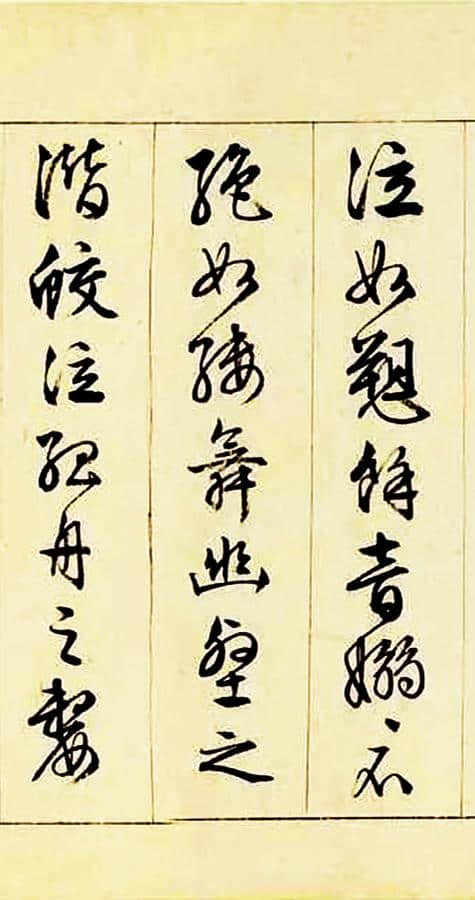 泣如愬餘音嫋〻不
絕如縷舞幽壑之
潛蛟泣孤舟之嫠